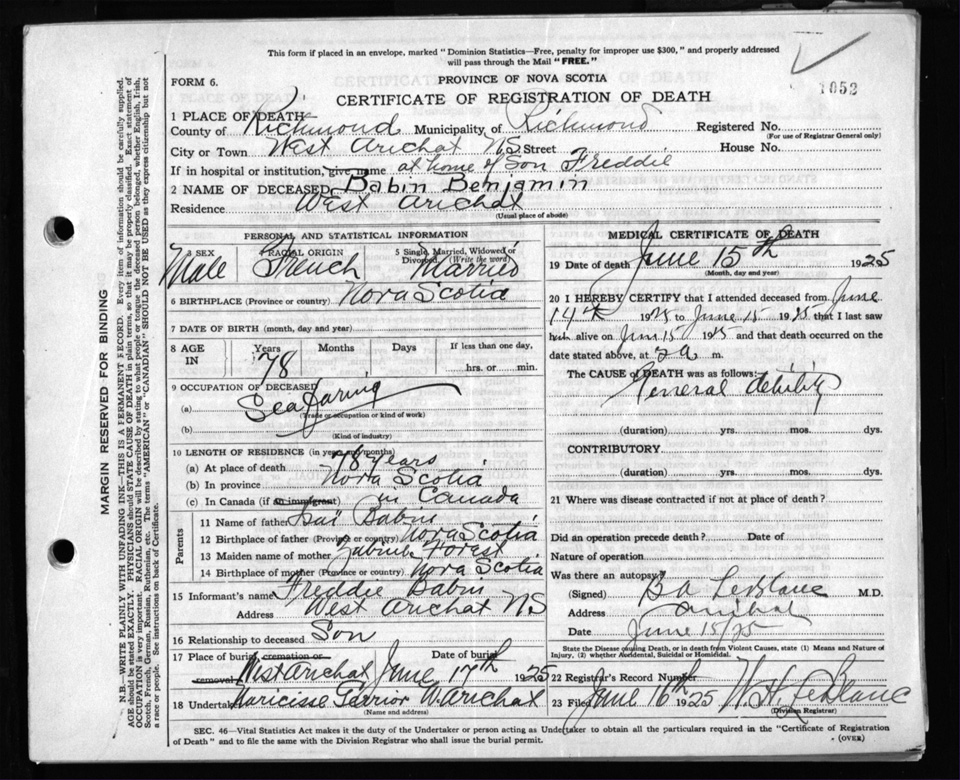 This form if placed in an envelope, marked "Dominion Statistics—Free, penalty for improper use $300," and properly addressed
will pass through the Mail "FREE."
1052
FORM 6.
PROVINCE OF NOVA SCOTIA
CERTIFICATE OF REGISTRATION OF DEATH
1 PLACE OF DEATH
County of Richmond Municipality of Richmond Registered No.
(For use of Registrar General only)
City or Town West Arichat N.S. Street House No.
If in hospital or institution, give name at home of Son Freddie
2 NAME OF DECEASED Babin Benjamin
Residence West Arichat
(Usual place of abode)
PERSONAL AND STATISTICAL INFORMATION
3 SEX Male
RACIAL ORIGIN French
5 Single, Married, Widowed or Divorced (Write the word) Married
6 BIRTHPLACE (Province or country) Nova Scotia
7 DATE OF BIRTH (month, day and year)
8 AGE IN Years 78 Months Days If less than one day, hrs. or min.
9 OCCUPATION OF DECEASED
(a) Seafaring
(Trade or occupation or kind of work)
(b)
(Kind of industry)
10 LENGTH OF RESIDENCE (in years and months)
(a) At place of death 78 years
(b) In province Nova Scotia
(c) In Canada (if an immigrant) in Canada
Parents
11 Name of father Babin
12 Birthplace of father (Province or country) Nova Scotia
13 Maiden name of mother Forest
14 Birthplace of mother (Province or country) Nova Scotia
15 Informant's name Freddie Babin
Address West Arichat N S
16 Relationship to deceased Son
17 Place of burial, cremation or removal West Arichat Date of burial June 17th 1925
18 Undertaker W. Arichat
(Name and address)
MEDICAL CERTIFICATE OF DEATH
19 Date of death June 15th 1925
(Month, day and year)
20 I HEREBY CERTIFY that I attended deceased from June
14th 1925 to June 15 1925 that I last saw
him alive on June 15 1925 and that death occurred on the
date stated above, at 2 a m.
The CAUSE of DEATH was as follows:
General debility
(duration) yrs. mos. dys.
CONTRIBUTORY
(duration) yrs. mos. dys.
21 Where was disease contracted if not at place of death?
Did an operation precede death? Date of
Nature of operation
Was there an autopsy?
(Signed) B A LeBlanc M.D.
Address Arichat
Date June 15/25
State the Disease causing Death, or in death from Violent Causes, state (1) Means and Nature of
Injury, (2) whether Accidental, Suicidal or Homicidal.
22 Registrar's Record Number
23 Filed June 16th 1925 W. H. LeBlanc
(Division Registrar)
SEC. 46—Vital Statistics Act makes it the duty of the Undertaker or person acting as Undertaker to obtain all the particulars required in the "Certificate of Registration
of Death" and to file the same with the Division Registrar who shall issue the burial permit.
(OVER)
MARGIN RESERVED FOR BINDING
N.B.—WRITE PLAINLY WITH UNFADING INK—THIS IS A PERMANENT RECORD. Every item of information should be carefully supplied.
AGE should be stated EXACTLY. PHYSICIANS should STATE CAUSE OF DEATH in plain terms, so that it may be properly classified. Exact statement of
OCCUPATION is very important. RACIAL ORIGIN will be described by stating to what people or tongue the deceased person belonged, whether English, Irish,
Scotch, French, German, Russian, Ruthenian, etc. The terms "AMERICAN" or "CANADIAN" SHOULD NOT BE USED as they express citizenship but not
a race or people. See instructions on back of Certificate.